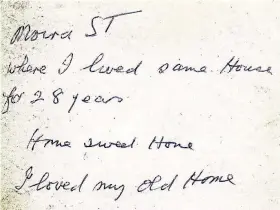 Moira ST
where I lived same House
for 28 years
Home sweed Home
I loved my old Home